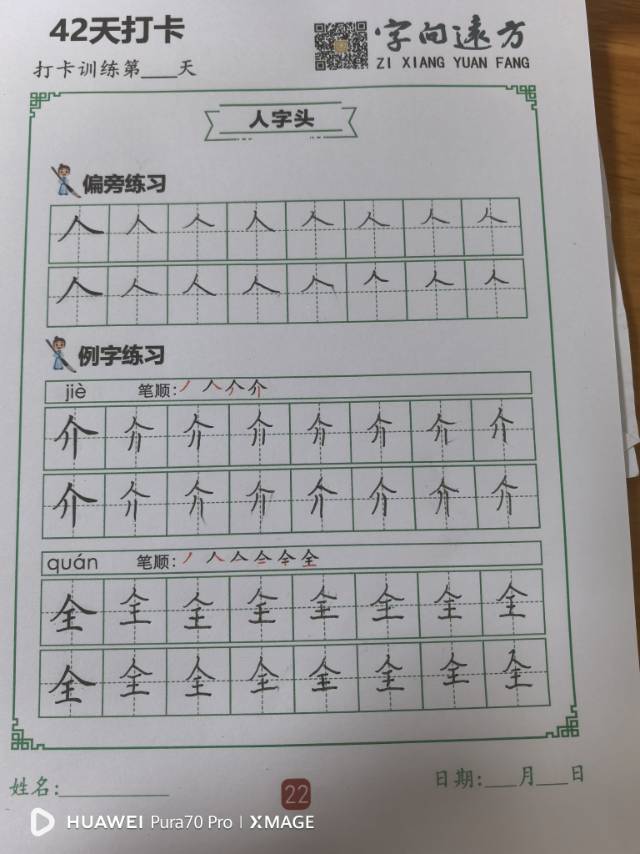 42天打卡
字向远方
打卡训练第___天
ZI XIANG YUAN FANG
人字头
偏旁练习
人 人 人 人 人 人 人 人
人 人 人 人 人 人 人 人
例字练习
jiè 笔顺:丿 人 介 介
介 介 介 介 介 介 介 介
介 介 介 介 介 介 介 介
quán 笔顺:丿 人 亼 仝 仐 全
全 全 全 全 全 全 全 全
全 全 全 全 全 全 全 全
姓名:__________
22
日期:___月___日
HUAWEI Pura70 Pro | XMAGE